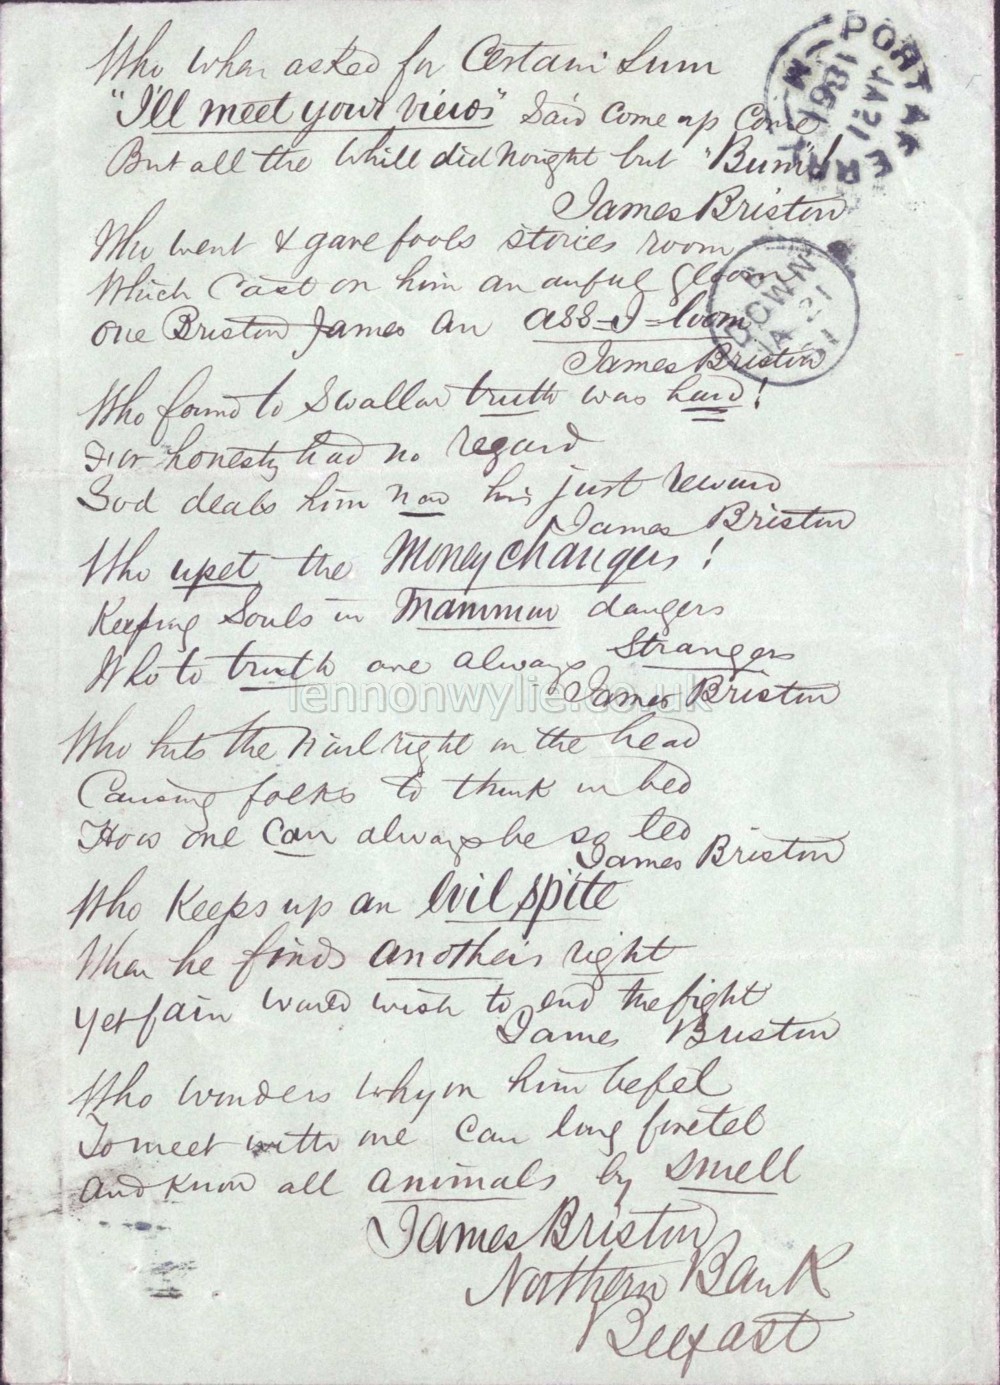 Who when asked for Certain Sum
"I'll meet your views" Said come up come
But all the while did nought but "Bum"!
James Bristow
Who went & gave fools stories room
Which Cast on him an awful gloom
One Bristow James an ass=I=loom
James Bristow
Who found to Swallow truth was hard!
For honesty had no regard
God deals him now his just reward
James Bristow
Who upset the Money changers!
Keeping Souls in Mammon dangers
Who to truth are always Strangers
James Bristow
Who hits the Nail right on the head
Causing folks to think in bed
How one can always be so led
James Bristow
Who keeps up an Evil spite
When he finds anothers right
Yet fain would wish to end the fight
James Bristow
Who wonders why on him befel
To meet with one can long foretel
And know all animals by smell
James Bristow
Northern Bank
Belfast
PORTAFERRY
JA 21
DOWN
JA 21
lennonwylie.co.uk